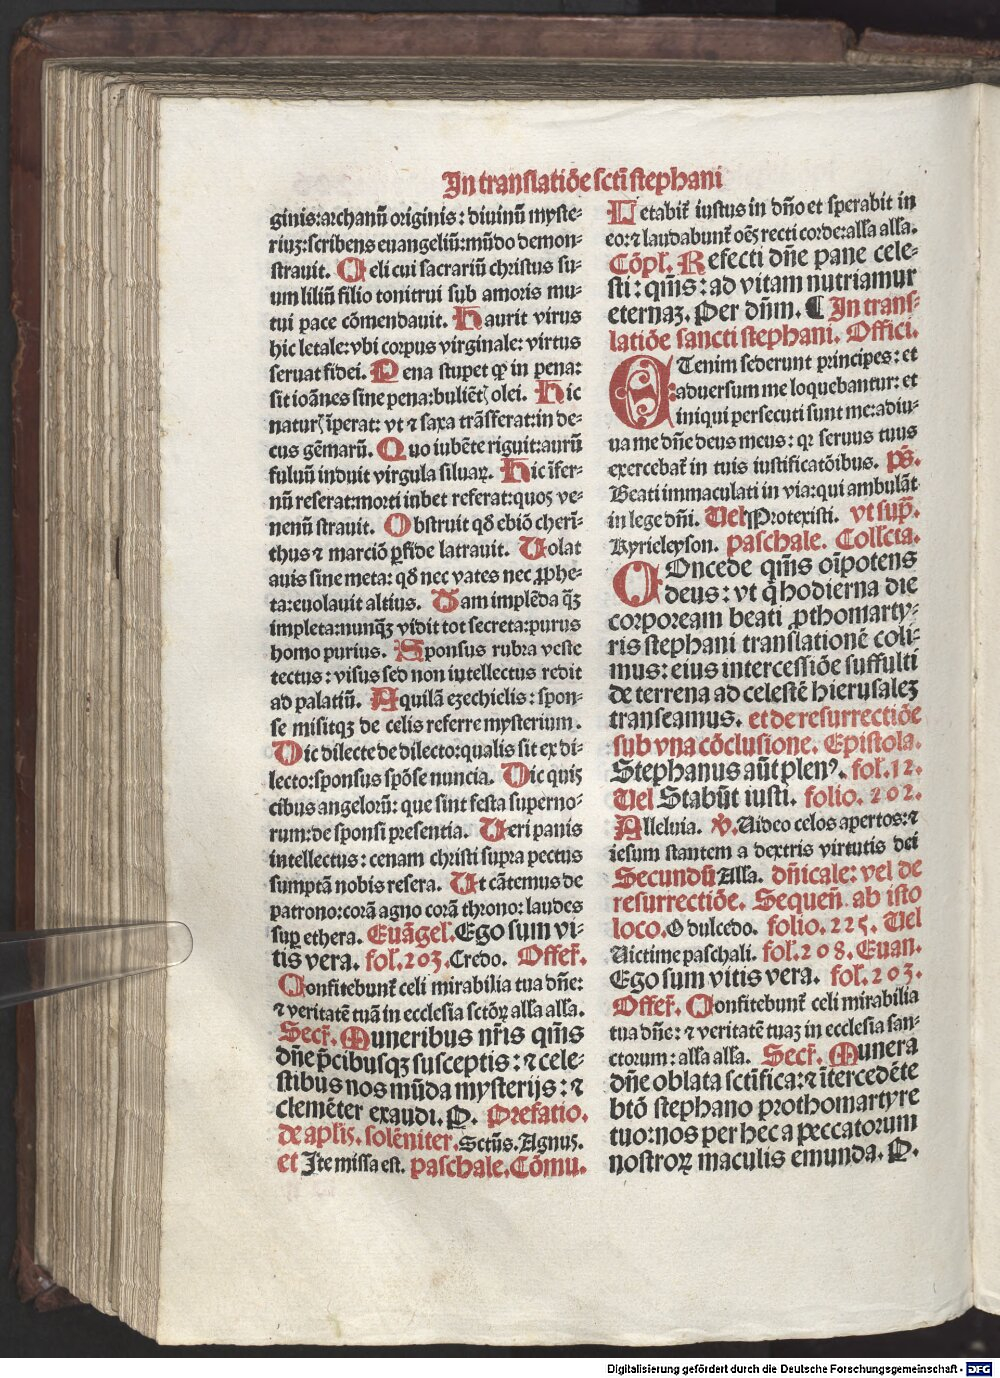 In translatiõe sctĩ stephani
ginis: archanũ originis: diuinũ myste-
riuz: scribens euangeliũ: mũdo demon-
strauit. Celi cui sacrariũ christus su-
um liliũ filio tonitrui sub amoris mu-
tui pace cõmendauit. Haurit virus
hic letale: vbi corpus virginale: virtus
seruat fidei. Pena stupet qp in pena:
sit ioãnes sine pena: buliẽt⁹ olei. Hic
natur⁹ ĩperat: vt ⁊ saxa trãsferat: in de-
cus gẽmarũ. Quo iubẽte riguit: aurũ
fuluũ induit virgula siluaꝝ. Hic ĩfer-
nũ reserat: morti iubet referat: quos ve-
nenũ strauit. Obstruit qõ ebiõ cherĩ-
thus ⁊ marciõ ꝑfide latrauit. Uolat
auis sine meta: qõ nec vates nec ꝓphe-
ta: euolauit altius. Tam implẽda qȝ
impleta: nunqȝ vidit tot secreta: purus
homo purius. Sponsus rubra veste
tectus: visus sed non intellectus redit
ad palatiũ. Aquilã ezechielis: spon-
se misitqȝ de celis referre mysterium.
Dic dilecte de dilecto: qualis sit ex di-
lecto: sponsus spõse nuncia. Dic quis
cibus angelorũ: que sint festa superno-
rum: de sponsi presentia. Ueri panis
intellectus: cenam christi supra pectus
sumptã nobis resera. Ut cãtemus de
patrono: corã agno corã throno: laudes
suꝑ ethera. Euãgel. Ego sum vi-
tis vera. fol. 203. Credo. Offer̃.
Confitebunt̃ celi mirabilia tua dñe:
⁊ veritatẽ tuã in ecclesia sctõꝝ alła alła.
Secr̃. Muneribus nr̃is qm̃s
dñe p̃cibusqȝ susceptis: ⁊ cele-
stibus nos mũda mysterijs: ⁊
clemẽter exaudi. P. Prefatio.
de apl̃is. solẽniter. Sctũs. Agnus.
et Ite missa est. paschale. Cõmu.
Letabit̃ iustus in dño et sperabit in
eo: ⁊ laudabunt̃ oẽs recti corde: alła alła.
Cõpl̃. Refecti dñe pane cele-
sti: qm̃s: ad vitam nutriamur
eternaȝ. Per dñm. ¶ In trans-
latiõe sancti stephani. Offici.
ETenim sederunt principes: et
aduersum me loquebantur: et
iniqui persecuti sunt me: adiu-
ua me dñe deus meus: qr seruus tuus
exercebat̃ in tuis iustificatõibus. ps̃.
Beati immaculati in via: qui ambulãt
in lege dñi. Uel Protexisti. vt sup̃.
Kyrieleyson. paschale. Collc̃ta.
COncede qm̃s oĩpotens
deus: vt q̃ hodierna die
corpoream beati ꝓthomarty-
ris stephani translationẽ coli-
mus: eius intercessiõe suffulti
de terrena ad celestẽ hierusaleȝ
transeamus. et de resurrectiõe
sub vna cõclusione. Epistola.
Stephanus aũt plen⁹. fol. 12.
Uel Stabũt iusti. folio. 202.
Alleluia. ℣. Uideo celos apertos: ⁊
iesum stantem a dextris virtutis dei
Secundũ Alła. dñicale: vel de
resurrectiõe. Sequeñ. ab isto
loco. O dulcedo. folio. 225. Uel
Uictime paschali. fol. 208. Euan.
Ego sum vitis vera. fol. 203.
Offer̃. Confitebunt̃ celi mirabilia
tua dñe: ⁊ veritatẽ tuaȝ in ecclesia san-
ctorum: alła alła. Secr̃. Munera
dñe oblata sctĩfica: ⁊ ĩtercedẽte
btõ stephano prothomartyre
tuo: nos per hec a peccatorum
nostroꝝ maculis emunda. P.
Digitalisierung gefördert durch die Deutsche Forschungsgemeinschaft - DFG